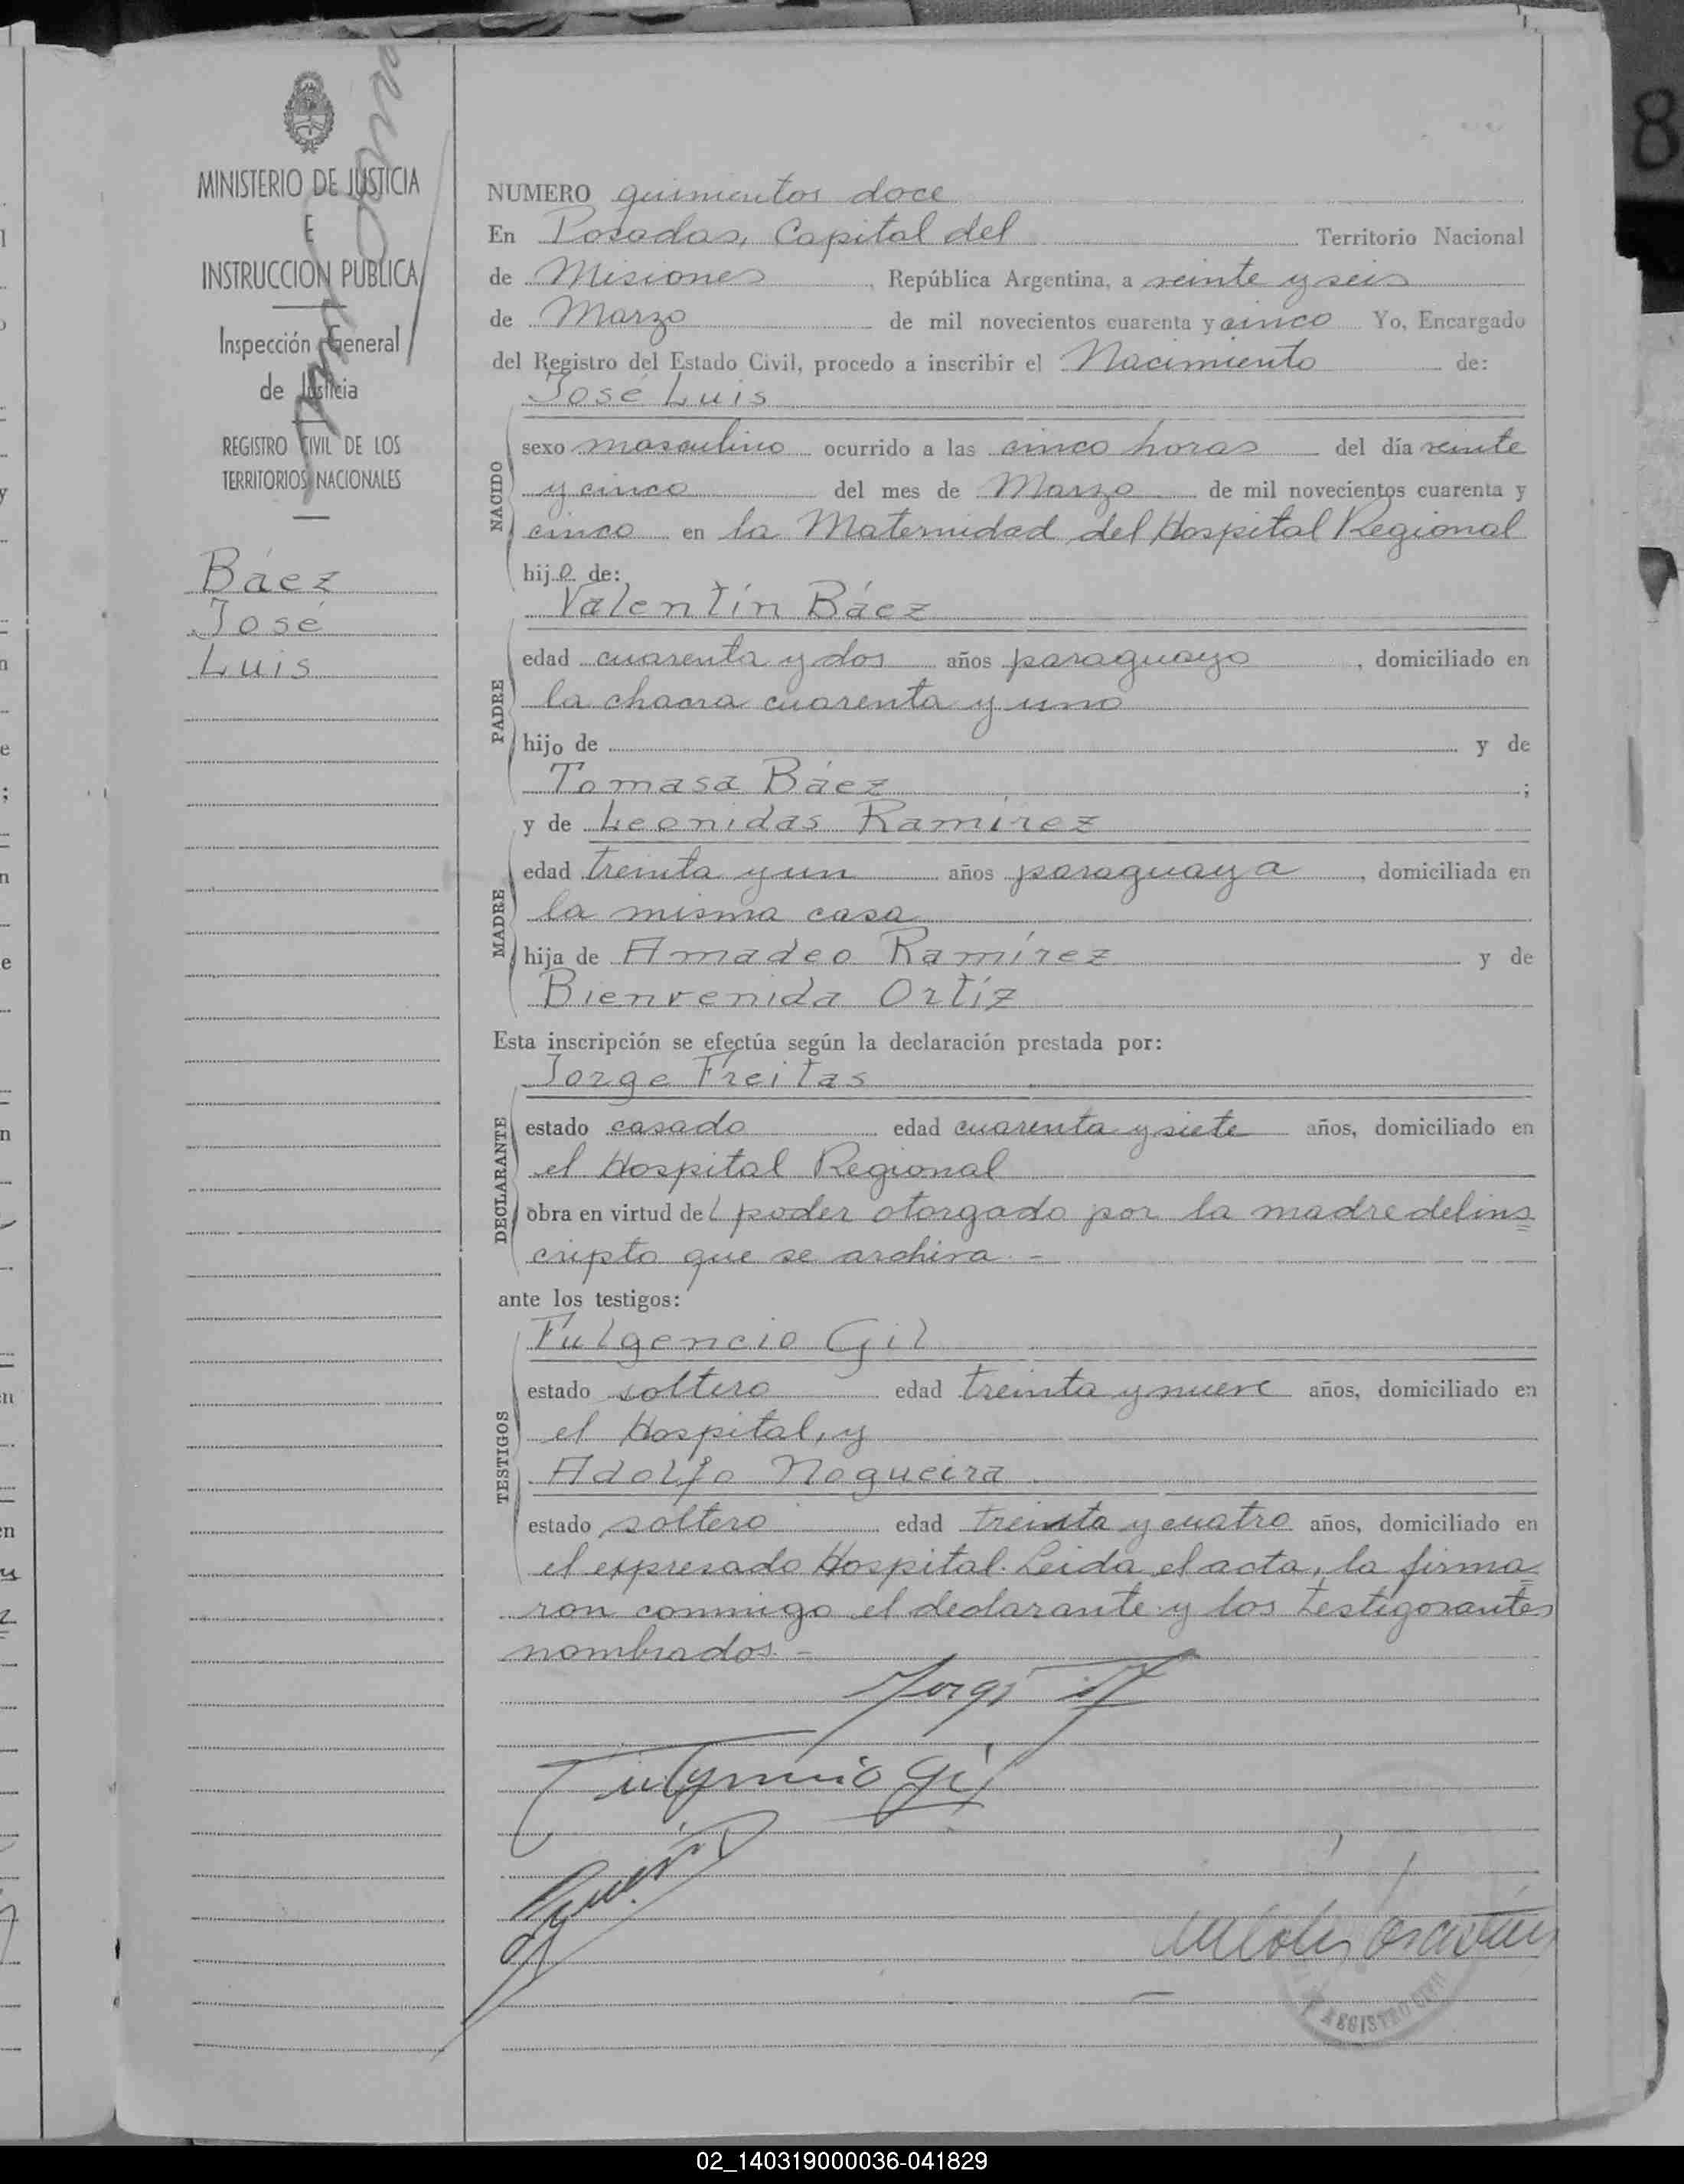 MINISTERIO DE JUSTICIA
E
INSTRUCCION PUBLICA
Inspección General
de Justicia
REGISTRO CIVIL DE LOS
TERRITORIOS NACIONALES
Báez
José
Luis
NUMERO quinientos doce
En Posadas, Capital del Territorio Nacional
de Misiones, República Argentina, a veinte y seis
de Marzo de mil novecientos cuarenta y cinco Yo, Encargado
del Registro del Estado Civil, procedo a inscribir el Nacimiento de:
José Luis
NACIDO
sexo masculino ocurrido a las cinco horas del día veinte
y cinco del mes de Marzo de mil novecientos cuarenta y
cinco en la Maternidad del Hospital Regional
hijo de:
Valentín Báez
PADRE
edad cuarenta y dos años paraguayo, domiciliado en
la chacra cuarenta y uno
hijo de y de
Tomasa Báez;
y de Leonidas Ramírez
MADRE
edad treinta y un años paraguaya, domiciliada en
la misma casa
hija de Amadeo Ramírez y de
Bienvenida Ortíz
Esta inscripción se efectúa según la declaración prestada por:
Jorge Freitas
DECLARANTE
estado casado edad cuarenta y siete años, domiciliado en
el Hospital Regional
obra en virtud del poder otorgado por la madre del ins=
cripto que se archiva.-
ante los testigos:
Fulgencio Gil
TESTIGOS
estado soltero edad treinta y nueve años, domiciliado en
el Hospital, y
Adolfo Nogueira
estado soltero edad treinta y cuatro años, domiciliado en
el expresado Hospital. Leida el acta, la firma=
ron conmigo el declarante y los testigos antes
nombrados.-
Fulgencio Gil
REGISTRO CIVIL
8
02_140319000036-041829